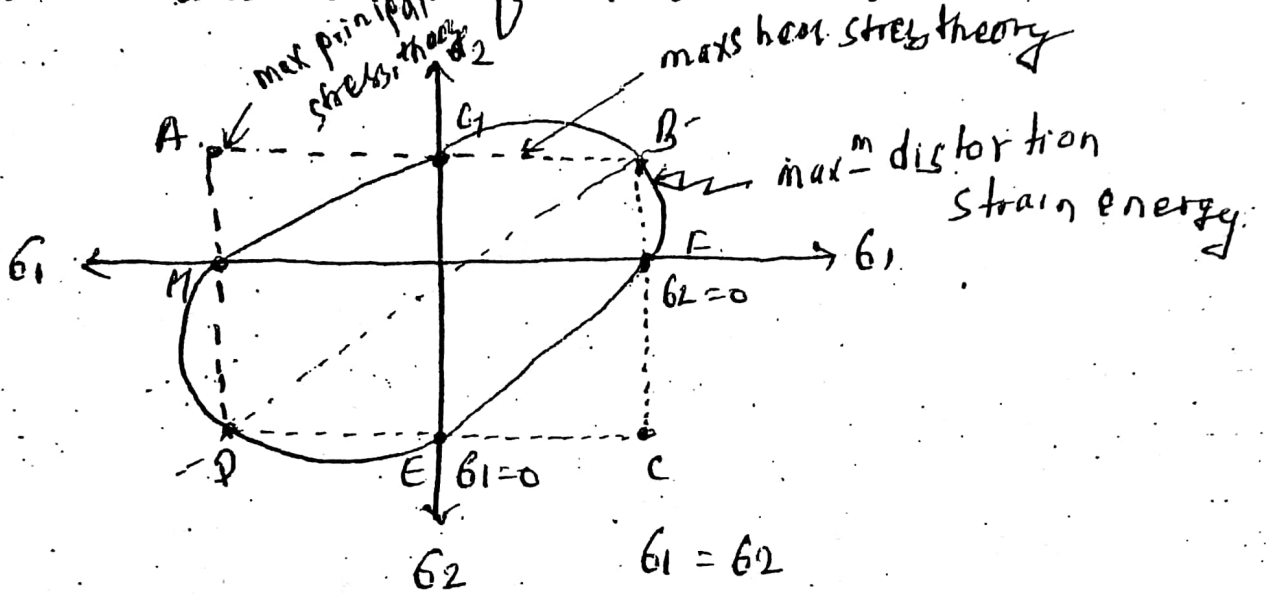 max principal
stress, theory
62
maxshear stress theory
A
G
B
max m distortion
strain energy
61
H
F
61
62=0
D
E
61=0
C
62
61 = 62